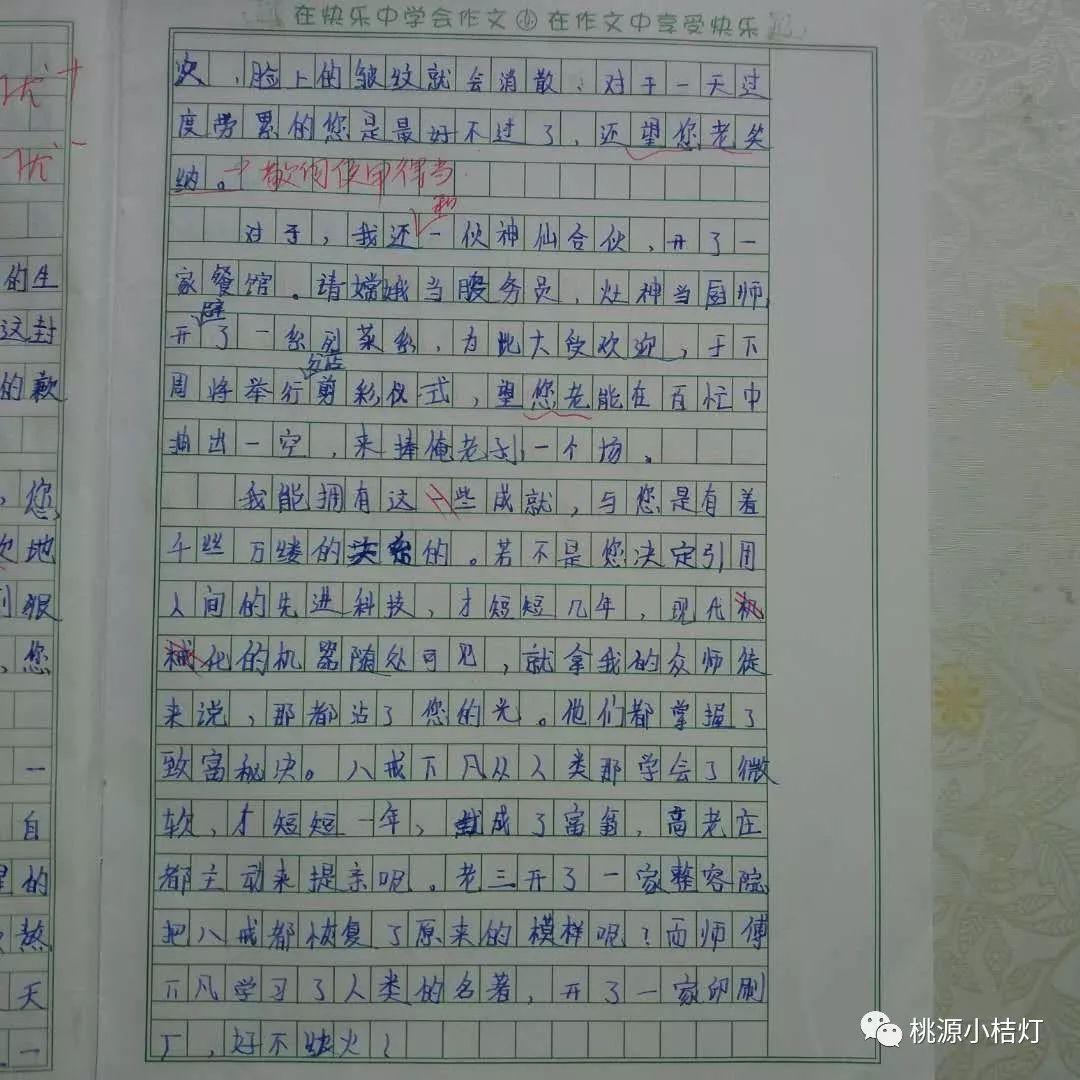 在快乐中学会作文 在作文中享受快乐
优+
优-
的生
这封
的歉
,您
次地
到狠
,您
一
自
的
熬
天
一
次,脸上的皱纹就会消散;对于一天过
度劳累的您是最好不过了,还望您老笑
纳。敬词使用得当
和
对于,我还一伙神仙合伙,开了一
家餐馆。请嫦娥当服务员,灶神当厨师
辟
开了一系列菜系,为此大受欢迎,于下
分店
周将举行剪彩仪式,望您老能在百忙中
抽出一空,来捧俺老孙一个场。
我能拥有这一些成就,与您是有着
千丝万缕的关系的。若不是您决定引用
人间的先进科技,才短短几年,现代机
械化的机器随处可见,就拿我的众师徒
来说,那都沾了您的光。他们都掌握了
致富秘决。八戒下凡从人类那学会了微
软,才短短一年,就成了富翁,高老庄
都主动来提亲呢。老三开了一家整容院
把八戒都恢复了原来的模样呢?而师傅
下凡学习了人类的名著,开了一家印刷
厂,好不快火!
桃源小桔灯